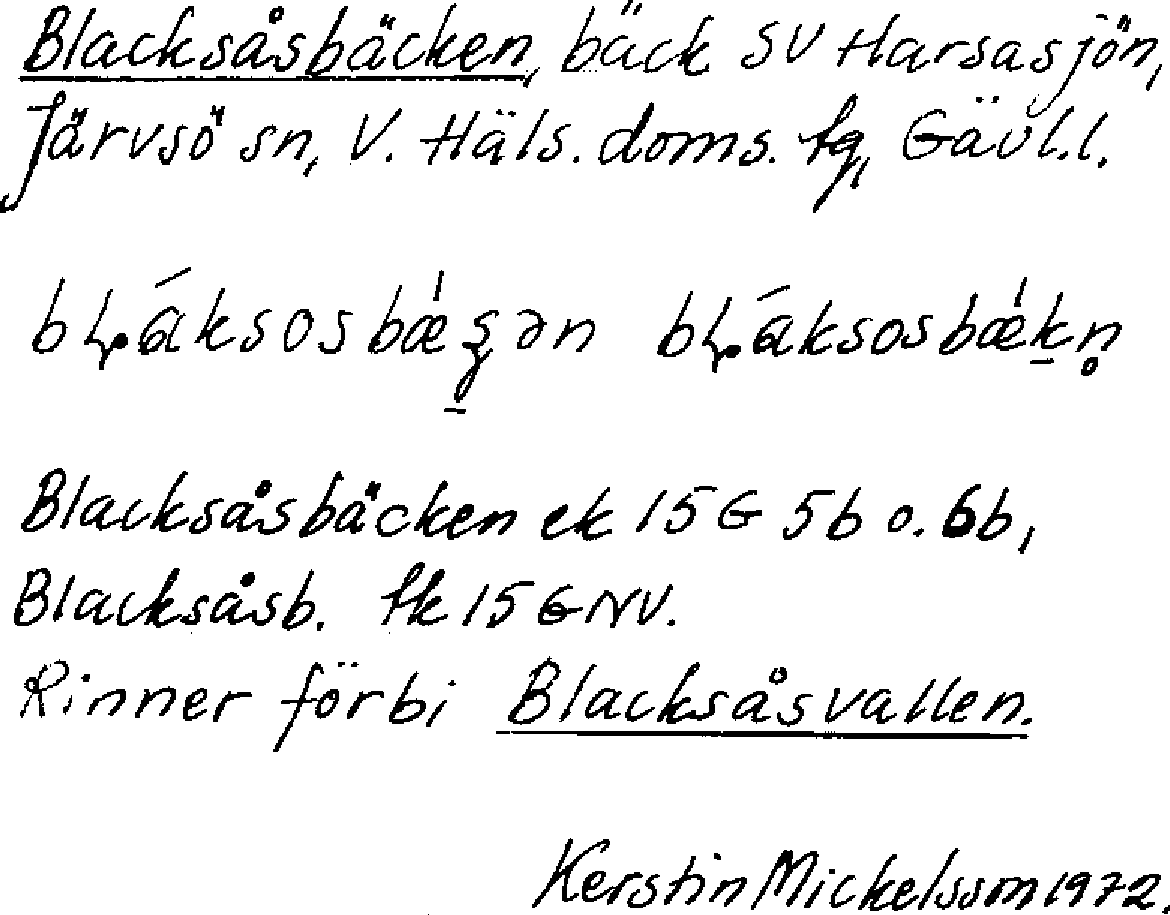 Blacksåsbäcken, bäck SV Harsasjön,
Järvsö sn, V. Häls. doms. tg, Gävl.l.
Blacksåsbäcken ek 15 G 5b o. 6b,
Blacksåsb. tk 15 G NV.
Rinner förbi Blacksåsvallen.
Kerstin Mickelsson 1972.